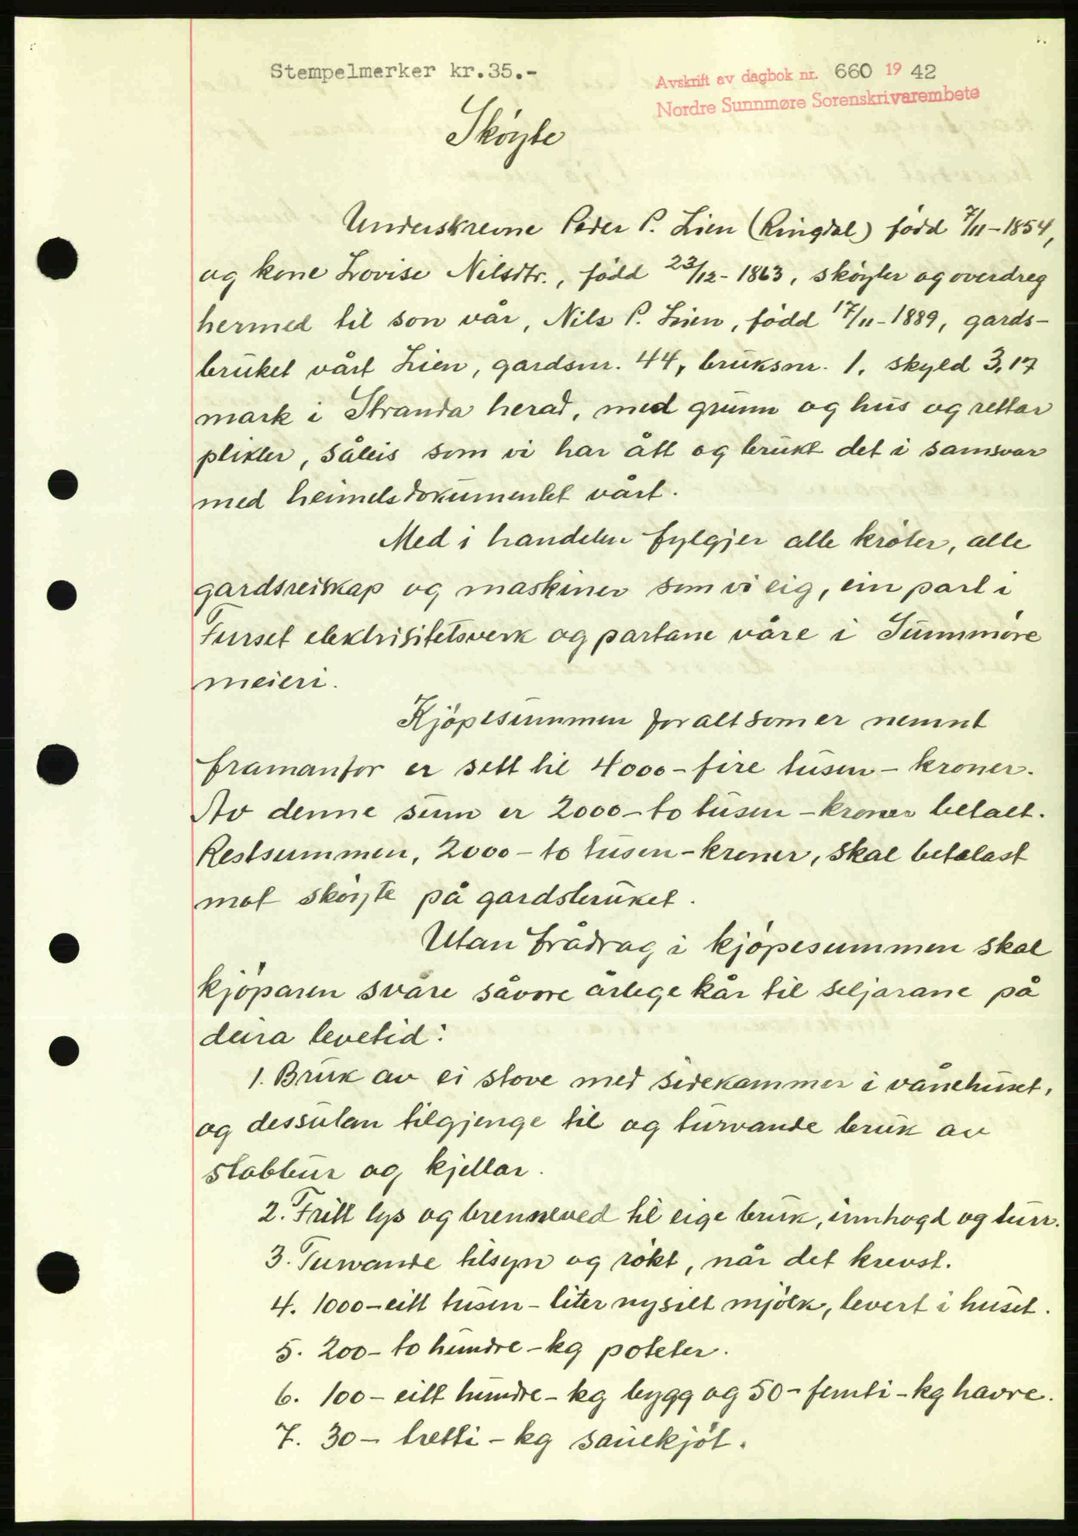 Stempelmerker kr.35.-
Avskrift av dagbok nr. 660 1942
Nordre Sunnmøre Sorenskrivarembete
Skøyte
Underskrevne Peder P. Lien (Ringdal) född 7/11-1854,
og kone Lovise Nilsdtr., född 23/12-1863, skøyter og overdreg
hermed til son vår, Nils P. Lien, född 17/11-1889, gards-
bruket vårt Lien, gardsnr. 44, bruksnr. 1, skyld 3,17
mark i Stranda herad, med grunn og hus og rettar
plikter, såleis som vi har ått og brukt det i samsvar
med heimelsdokumentet vårt.
Med i handelen fylgjer alle krøter, alle
gardsreiskap og maskiner som vi eig, ein part i
Furset elektrisitetsverk og partane våre i Sunnmøre
meieri.
Kjöpesummen for alt som er nemnt
framanfor er sett til 4000-fire tusen-kroner.
Av denne sum er 2000-to tusen-kroner betalt.
Restsummen, 2000-to tusen-kroner, skal betalast
mot skøyte på gardsbruket.
Utan frådrag i kjöpesummen skal
kjöparen svare såvore årlege kår til seljarane på
deira levetid:
1. Bruk av ei stove med sidekammer i vånehuset,
og dessutan tilgjenge til og turvande bruk av
stabbur og kjellar.
2. Fritt lys og brenneved til eige bruk, innhogd og turr.
3. Turvande tilsyn og rökt, når det krevst.
4. 1000-eitt tusen-liter nysilt mjölk, levert i huset.
5. 200-to hundre-kg poteter.
6. 100-eitt hundre-kg bygg og 50-femti-kg havre.
7. 30-tretti-kg sauekjöt.